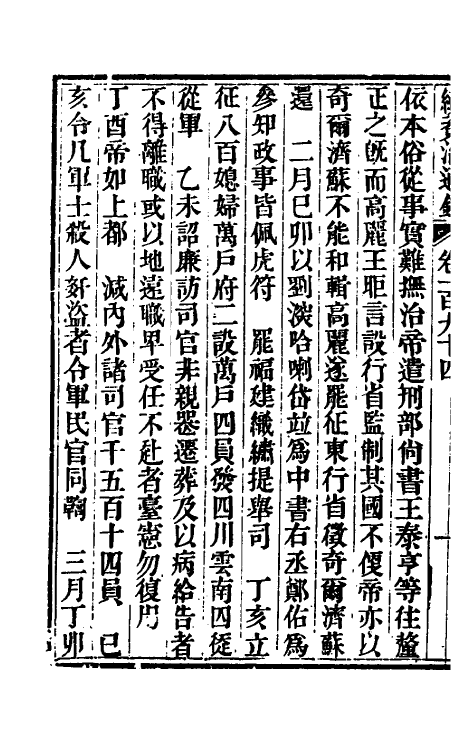 續資治通鑑 卷一百九十四
依本俗從事實難撫治帝遣刑部尚書王泰亨等往釐
正之旣而高麗王昛言設行省監制其國不便帝亦以
奇爾濟蘇不能和輯高麗遂罷征東行省徵奇爾濟蘇
還 二月己卯以劉深哈喇岱並爲中書右丞鄭佑爲
參知政事皆佩虎符 罷福建織繡提舉司 丁亥立
征八百媳婦萬戶府二設萬戶四員發四川雲南囚徒
從軍 乙未詔廉訪司官非親喪遷葬及以病給告者
不得離職或以地遠職卑受任不赴者臺憲勿復用
丁酉帝如上都 減內外諸司官千五百十四員 己
亥令凡軍士殺人奸盜者令軍民官同鞫 三月丁卯